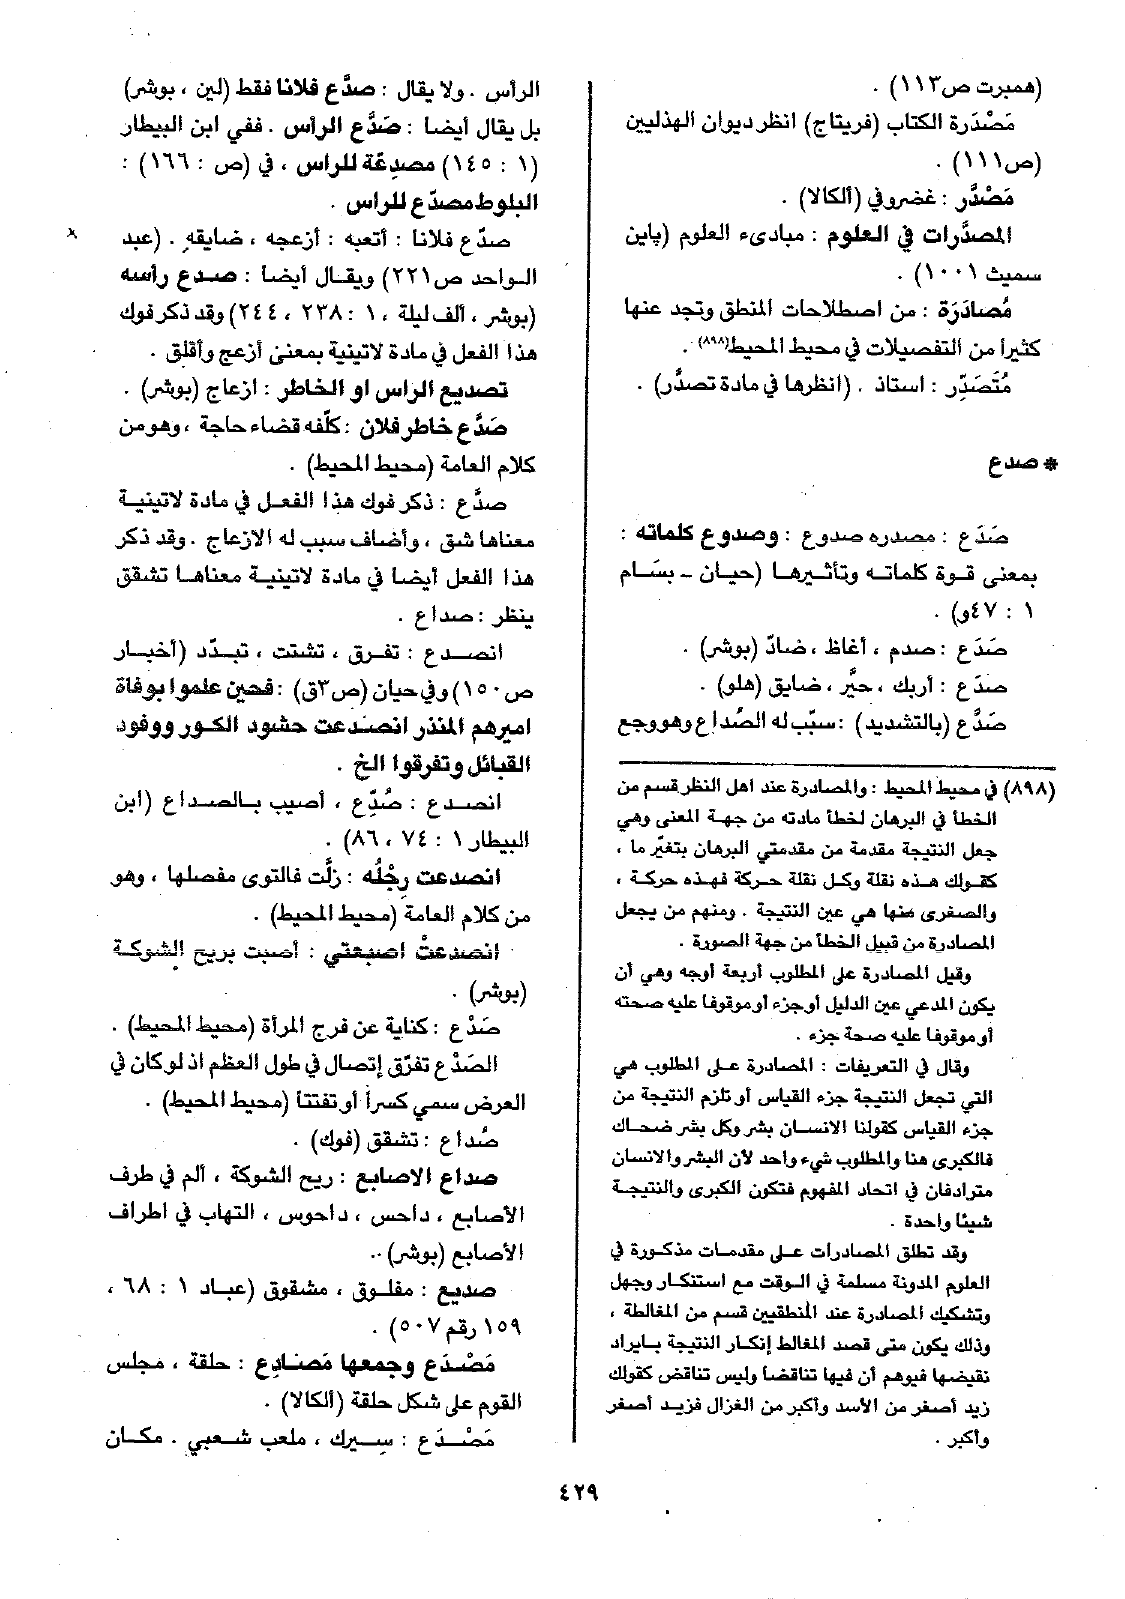 (همبرت ص١١٣) .
مَصْدَرة الكتاب (فريتاج) انظر ديوان الهذليين
(ص١١١) .
مَصْدَّر : غضروفي (ألكالا) .
المصدَّرات في العلوم : مبادىء العلوم (پاين
سميث ١٠٠١) .
مُصادَرَة : من اصطلاحات المنطق وتجد عنها
كثيراً من التفصيلات في محيط المحيط(٨٩٨) .
مُتَصَدِّر : استاذ . (انظرها في مادة تصدَّر) .
* صدع
صَدَع : مصدره صدوع : وصدوع كلماته :
بمعنى قوة كلماته وتأثيرها (حيان - بسّام
١ : ٤٧و) .
صَدَع : صدم ، أغاظ ، ضادّ (بوشر) .
صدَع : أربك ، حيَّر ، ضايق (هلو) .
صَدَّع (بالتشديد) : سبّب له الصُداع وهو وجع
(٨٩٨) في محيط المحيط : والمصادرة عند أهل النظر قسم من
الخطأ في البرهان لخطأ مادته من جهة المعنى وهي
جعل النتيجة مقدمة من مقدمتي البرهان بتغيّر ما ،
كقولك هذه نقلة وكل نقلة حركة فهذه حركة ،
والصغرى منها هي عين النتيجة . ومنهم من يجعل
المصادرة من قبيل الخطأ من جهة الصورة .
وقيل المصادرة على المطلوب أربعة أوجه وهي أن
يكون المدعي عين الدليل أو جزء أو موقوفا عليه صحته
أو موقوفا عليه صحة جزء .
وقال في التعريفات : المصادرة على المطلوب هي
التي تجعل النتيجة جزء القياس أو تلزم النتيجة من
جزء القياس كقولنا الانسان بشر وكل بشر ضحاك
فالكبرى هنا والمطلوب شيء واحد لأن البشر والانسان
مترادفان في اتحاد المفهوم فتكون الكبرى والنتيجة
شيئا واحدة .
وقد تطلق المصادرات على مقدمات مذكورة في
العلوم المدونة مسلمة في الوقت مع استنكار وجهل
وتشكيك المصادرة عند المنطقيين قسم من المغالطة ،
وذلك يكون متى قصد المغالط إنكار النتيجة بايراد
نقيضها فيوهم أن فيها تناقضاً وليس تناقض كقولك
زيد أصغر من الأسد وأكبر من الغزال فزيد أصغر
وأكبر .
الرأس . ولا يقال : صدَّع فلانا فقط (لين ، بوشر)
بل يقال أيضا : صَدَّع الرأس . ففي ابن البيطار
(١ : ١٤٥) مصدِعّة للراس ، في (ص : ١٦٦) :
البلوط مصدّع للراس .
صدّع فلانا : أتعبه : أزعجه ، ضايقه . (عبد
الواحد ص٢٢١) ويقال أيضا : صدع رأسه
(بوشر ، ألف ليلة ، ١ : ٢٣٨ ، ٢٤٤) وقد ذكر فوك
هذا الفعل في مادة لاتينية بمعنى أزعج وأقلق .
تصديع الراس او الخاطر : ازعاج (بوشر) .
صَدَّع خاطر فلان : كلّفه قضاء حاجة ، وهو من
كلام العامة (محيط المحيط) .
صدَّع : ذكر فوك هذا الفعل في مادة لاتينية
معناها شق ، وأضاف سبب له الازعاج . وقد ذكر
هذا الفعل أيضا في مادة لاتينية معناها تشقق
ينظر : صداع .
انصدع : تفرق ، تشتت ، تبدّد (أخبار
ص١٥٠) وفي حيان (ص٣ق) : فحين علموا بوفاة
اميرهم المنذر انصدعت حشود الكور ووفود
القبائل وتفرقوا الخ .
انصدع : صُدّع ، أصيب بالصداع (ابن
البيطار ١ : ٧٤ ، ٨٦) .
انصدعت رجْلُه : زلَّت فالتوى مفصلها ، وهو
من كلام العامة (محيط المحيط) .
انصدعتْ اصبعتي : أصبت بريح الشوكة
(بوشر) .
صَدْع : كناية عن فرج المرأة (محيط المحيط) .
الصَدْع تفرّق إتصال في طول العظم اذ لو كان في
العرض سمي كسراً أو تفتتا (محيط المحيط) .
صُداع : تشقق (فوك) .
صداع الاصابع : ريح الشوكة ، ألم في طرف
الأصابع ، داحس ، داحوس ، التهاب في اطراف
الأصابع (بوشر) .
صديع : مفلوق ، مشقوق (عباد ١ : ٦٨ ،
١٥٩ رقم ٥٠٧) .
مَصْدَع وجمعها مَصَادِع : حلقة ، مجلس
القوم على شكل حلقة (ألكالا) .
مَصْدَع : سِيرك ، ملعب شعبي . مكان
٤٢٩